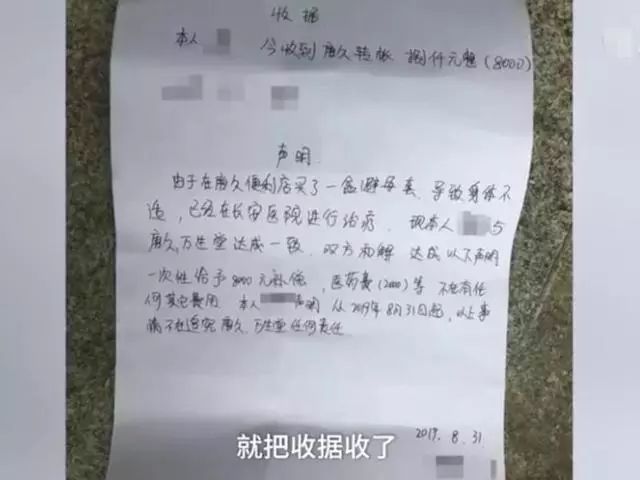 收据
本人 今收到唐久转账 捌仟元整(8000)
声明
由于在唐久便利店买了一盒避孕套,导致身体不
适,已经在长安医院进行治疗 现本人 与
唐久,万生堂达成一致,双方和解 达成以下声明
一次性给予8000元补偿,医药费(2000)等 不在有任
何其它费用 本人 声明 从2019年8月31日起,以上事
情不在追究唐久,万生堂任何责任
2019.8.31
就把收据收了